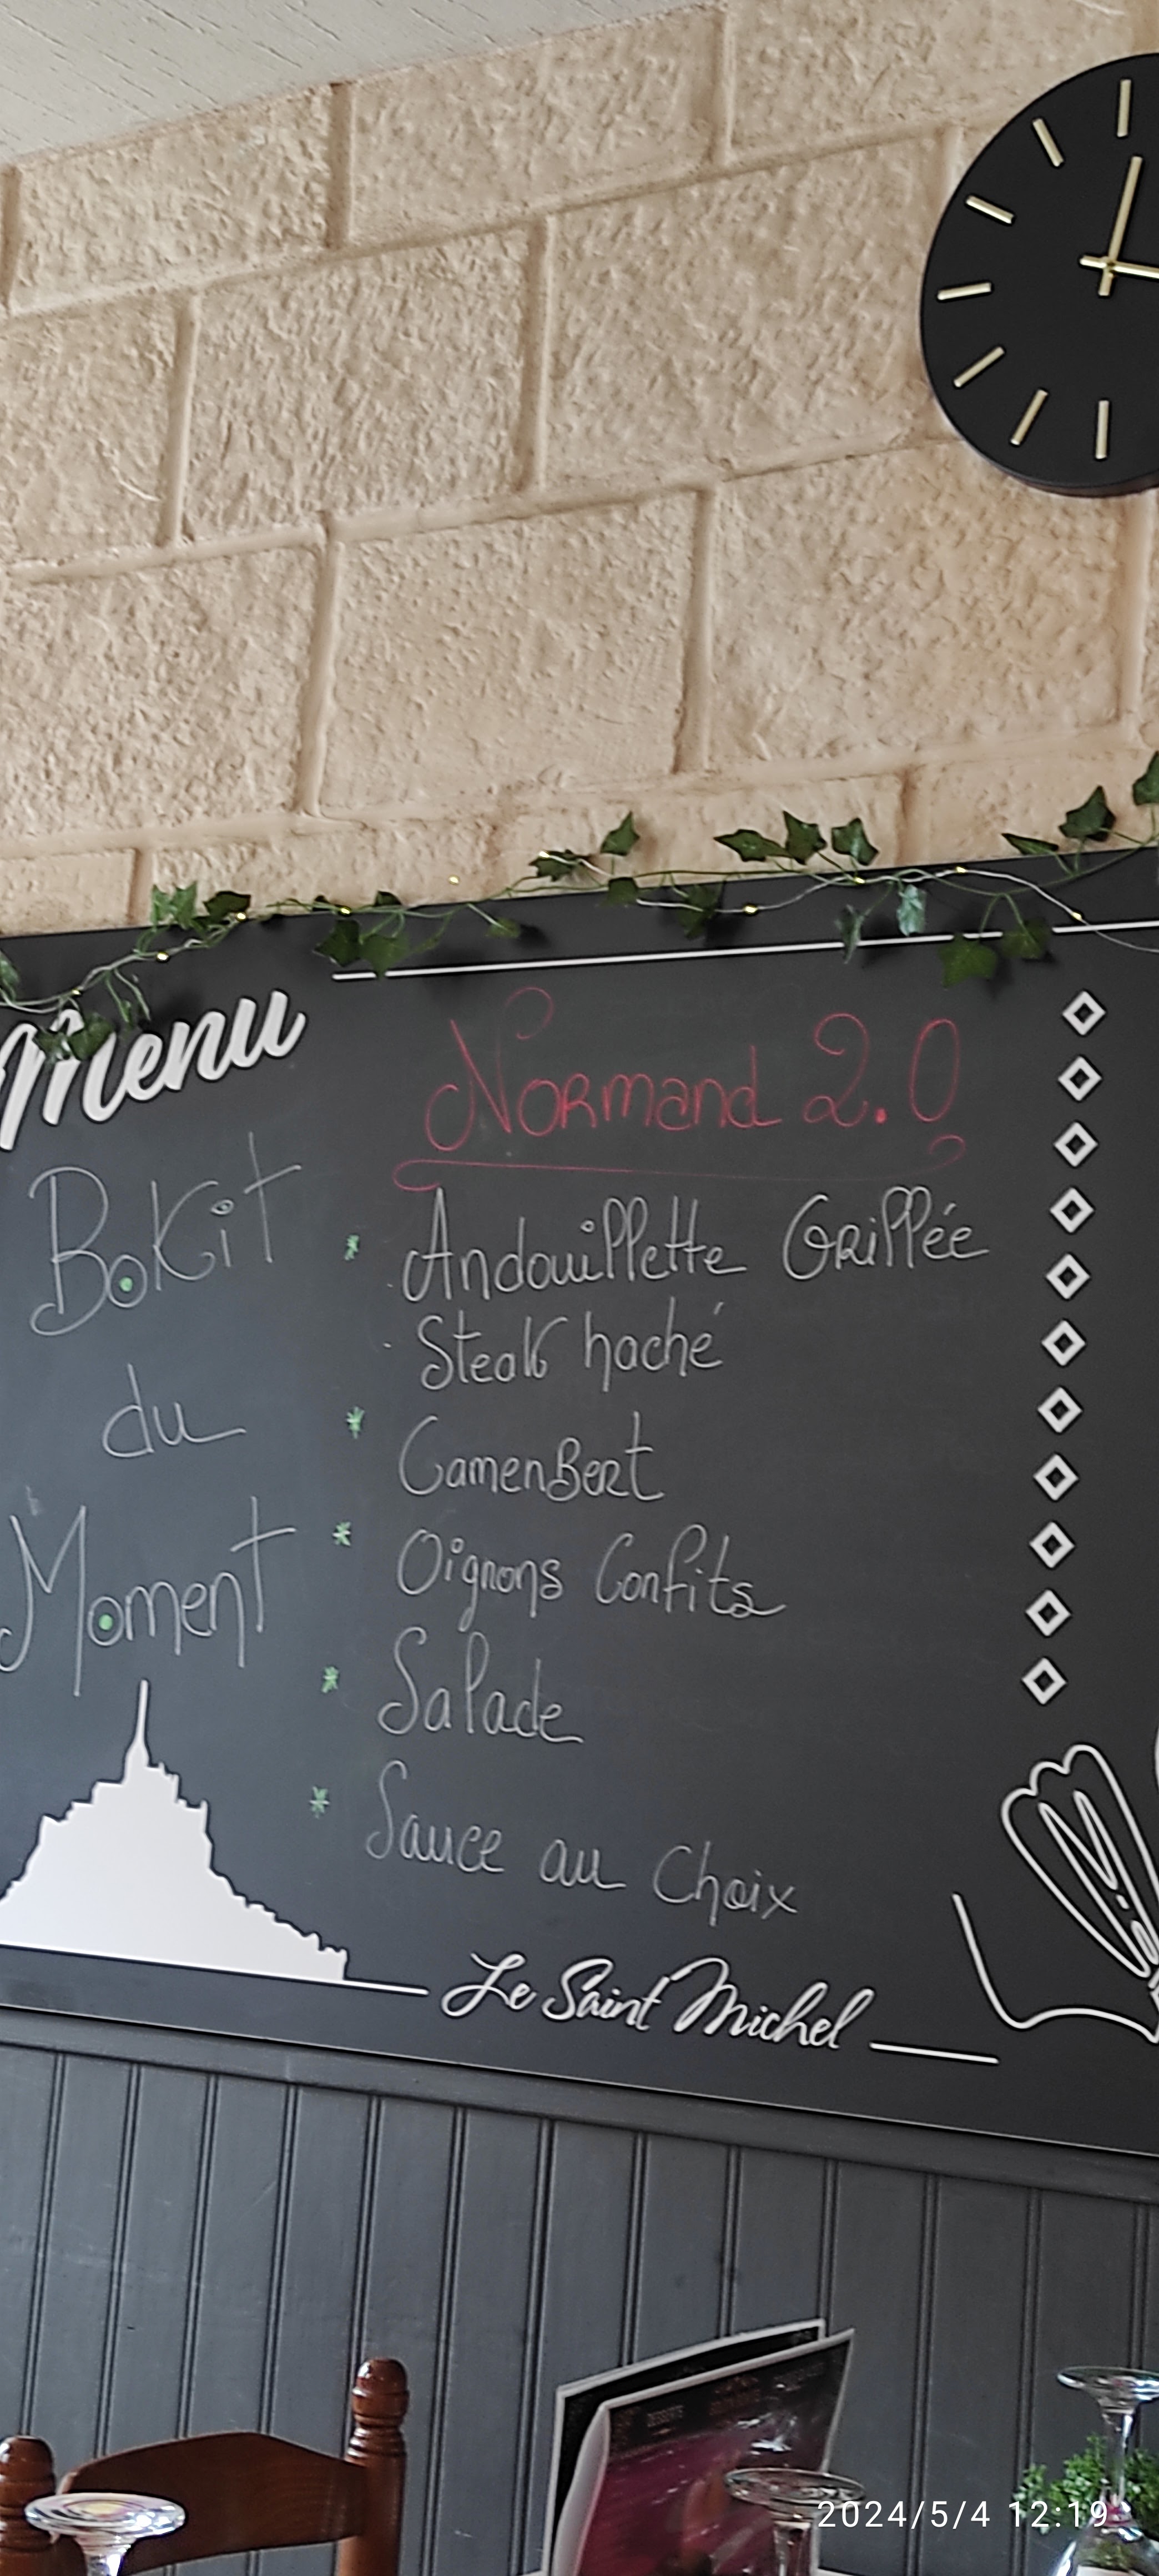 Menu
Normand 2.0
Bokit
du
Moment
* Andouillette Grillée
- Steak haché
* CamenBert
* Oignons Confits
* Salade
* Sauce au Choix
Le Saint Michel
2024/5/4 12:19